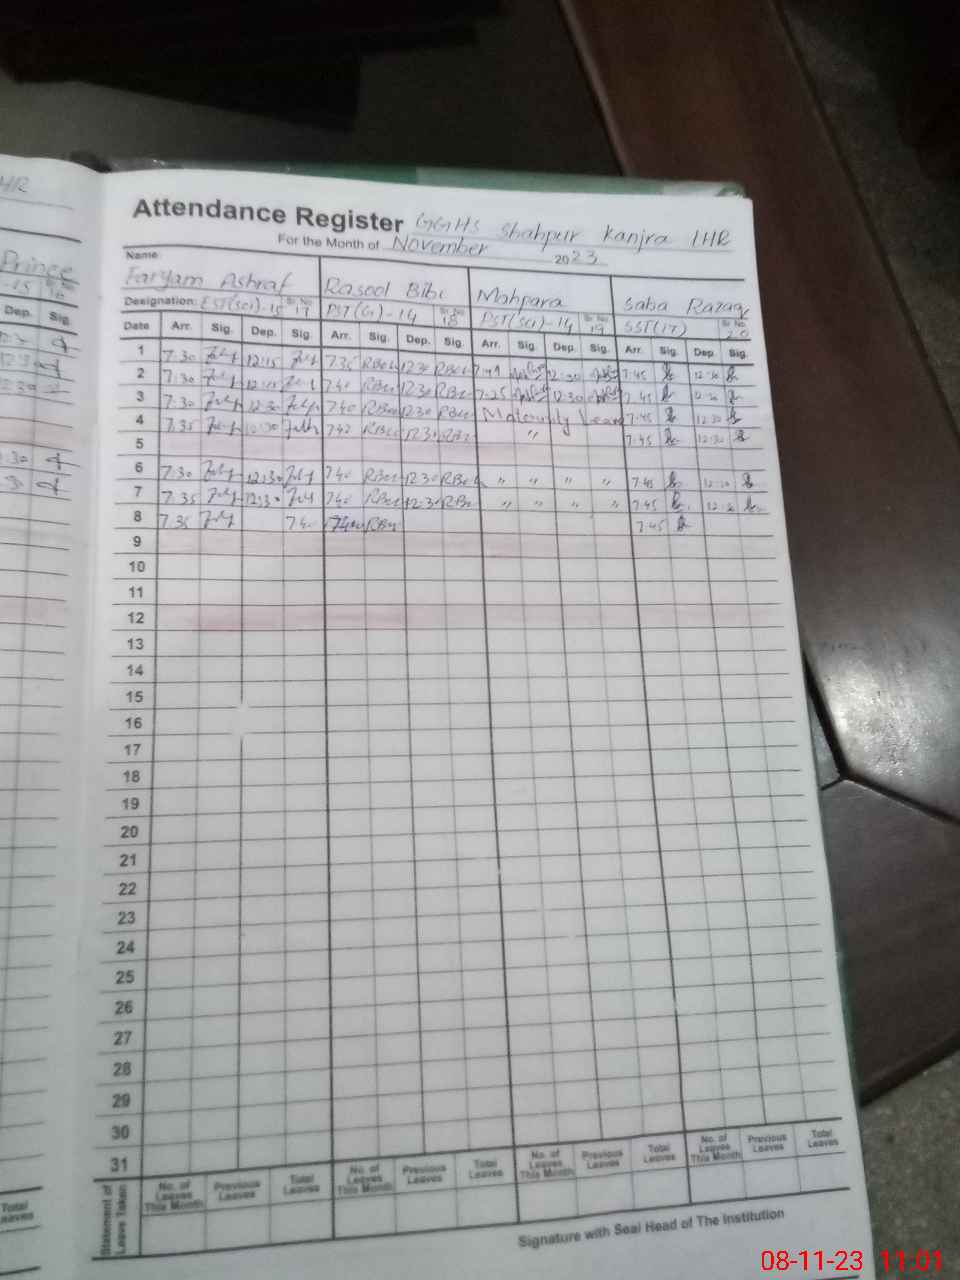 HR
Prince
Dep. Sig.
Attendance Register GGHS Shahpur Kanjra LHR
For the Month of November 2023
Name
Faryam Ashraf Rasool Bibi Mahpara Saba Razaq
Designation: EST(Sci)-15 Sr. No. 17 PST(G)-14 Sr. No. 18 PST(SG)-14 Sr. No. 19 SST(IT) Sr. No. 20
Date Arr. Sig. Dep. Sig. Arr. Sig. Dep. Sig. Arr. Sig. Dep. Sig. Arr. Sig. Dep. Sig.
1 7:30 12:15 7:35 12:30 12:30 7:45 12:30
2 7:30 7:40 12:30 7:25 12:30 7:45 12:30
3 7:30 12:30 7:40 12:30 Maternity Leave 7:45 12:30
4 7:35 12:30 7:42 12:30 " 7:45 12:30
5
6 7:30 12:30 7:40 12:30 " " " " 7:45 12:30
7 7:35 12:30 7:40 12:30 " " " " 7:45 12:30
8 7:35 7:40 7:40 7:45
9
10
11
12
13
14
15
16
17
18
19
20
21
22
23
24
25
26
27
28
29
30
31
Statement of Leave Taken
No. of Leaves This Month Previous Leaves Total Leaves No. of Leaves This Month Previous Leaves Total Leaves No. of Leaves This Month Previous Leaves Total Leaves No. of Leaves This Month Previous Leaves Total Leaves
Total Leaves
Signature with Seal Head of The Institution
08-11-23 11:01